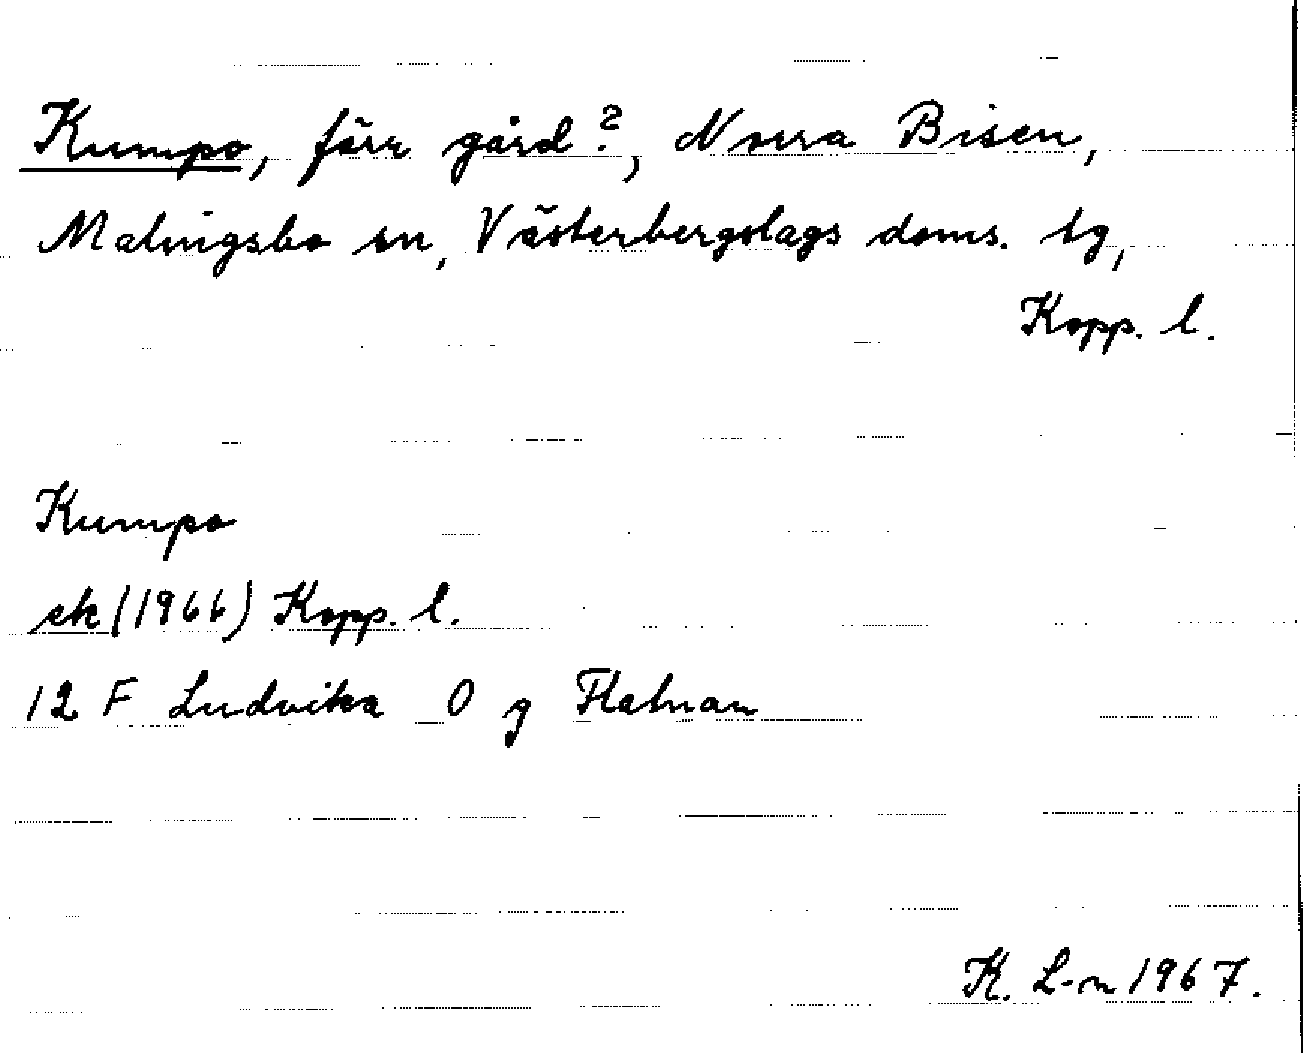 Kumpo, förr gård?, Norra Bisen,
Malingsbo sn, Västerbergslags doms. tg,
Kopp. l.
Kumpo
ek (1966) Kopp. l.
12 F Ludvika O g Flatnan
K. L-n 1967.